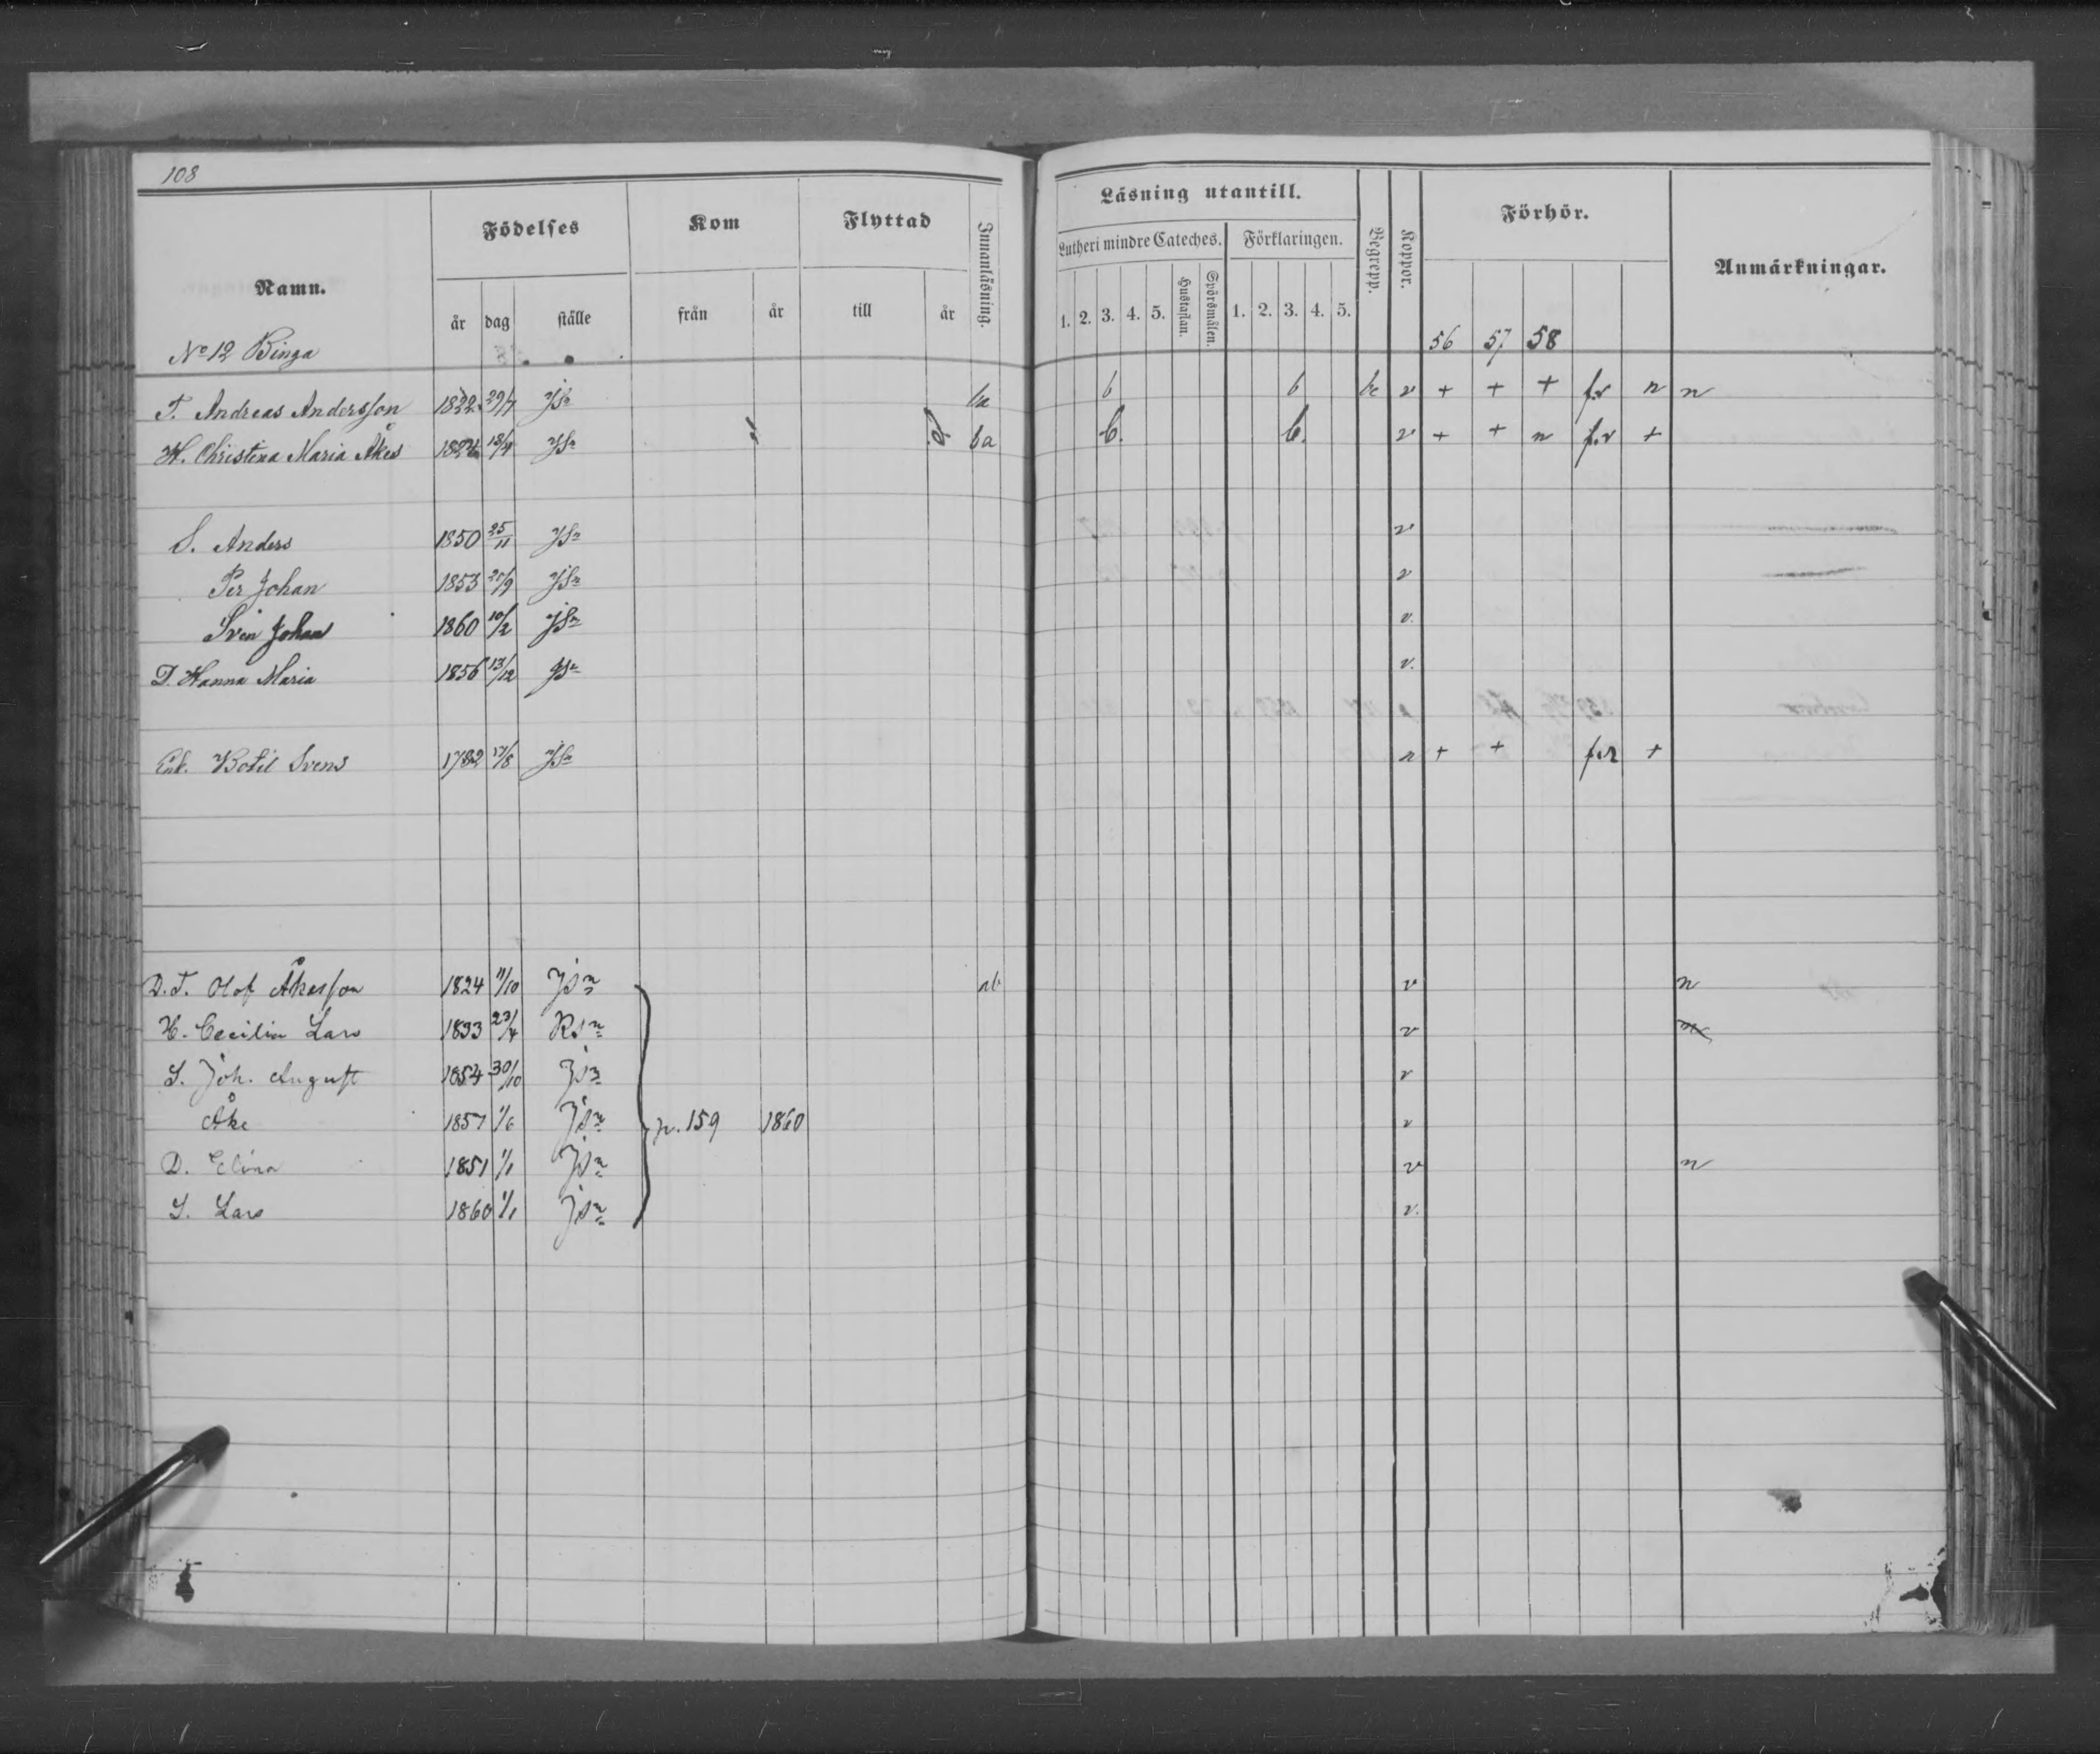 108
Namn. Födelses Kom Flyttad Innanläsning. Läsning utantill. Begrepp. Koppor. Förhör. Anmärkningar.
Lutheri mindre Cateches. Förklaringen.
år dag ställe från år till år 1. 2. 3. 4. 5. Hustaflan. Spörsmålen. 1. 2. 3. 4. 5.
No 12 Binga 56 57 58
T. Andreas Andersson 1822 29/7 Jsn ba b b bc v + + + f.v n n
H. Christina Maria Åkes 1824 18/4 Jsn ba b. b. v + + n f.v +
S. Anders 1850 25/11 Jsn v
Per Johan 1853 /9 Jsn v
Sven Johan 1860 10/2 Jsn v.
D. Hanna Maria 1856 13/12 Jsn v.
Enk. Botil Svens 1782 /8 Jsn n + + f.v +
D.T. Olof Åkesson 1824 11/10 Jsn ab v n
H. Cecilia Lars 1833 23/4 Rsn v n
S. Joh. August 1854 30/10 Jsn v
Åke 1857 1/6 Jsn p. 159 1860 v
D. Elina 1851 1/1 Jsn v n
S. Lars 1860 1/1 Jsn v.